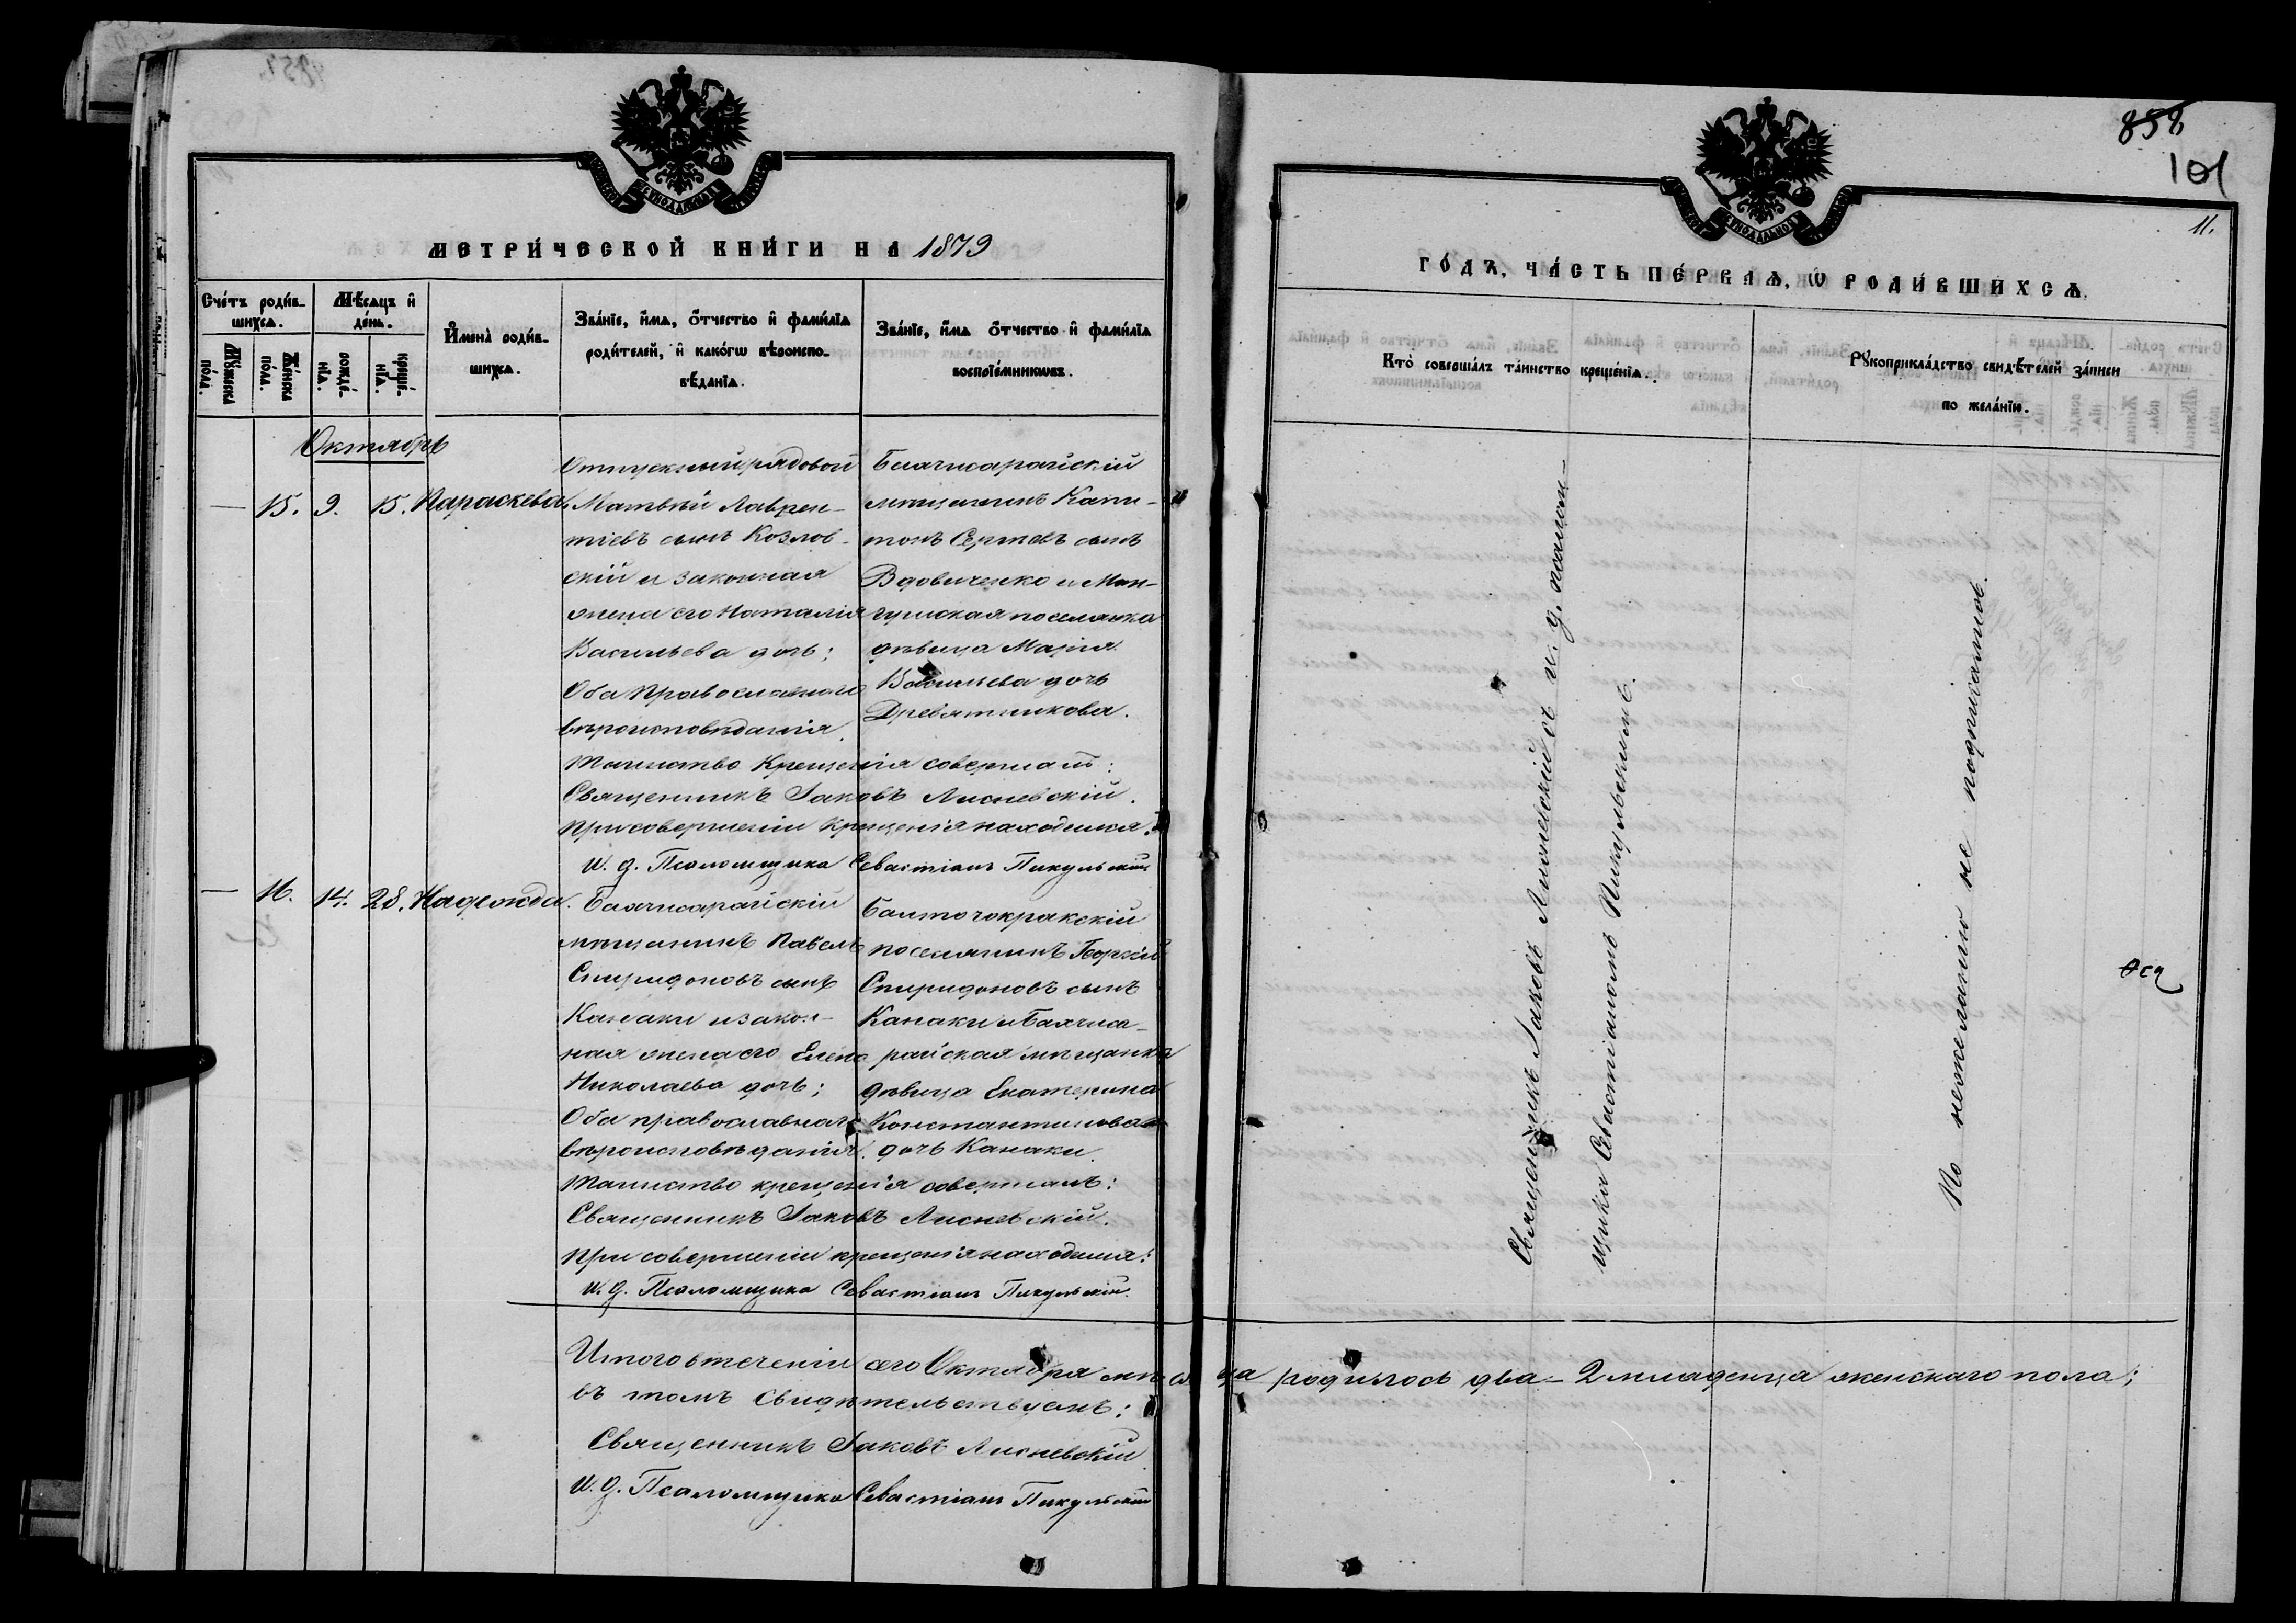 858
101
11.
МЕТРИЧЕСКОЙ КНИГИ НА 1879
ГОДЪ, ЧАСТЬ ПЕРВАЯ, Ѡ РОДИВШИХСЯ.
Счетъ родив-
шихся.
Мѣсяцъ и
день.
Имена родив-
шихся.
Званіе, имя, отчество и фамилія
родителей, и какогѡ вѣроиспо-
вѣданія.
Званіе, имя отчество и фамилія
воспріемникѡвъ.
Мужеска
пола.
Женска
пола.
рожде-
нія.
креще-
нія.
Кто совершалъ таинство крещенія.
Рукоприкладство свидѣтелей записи
по желанію.
Октябрь
— 15. 9. 15. Параскева.
Отпускный рядовой
Матвѣй Лаврен-
тіевъ сынъ Козлов-
скій и законная
жена его Наталія
Васильева дочь;
Оба православнаго
вѣроисповѣданія.
Бахчисарайскій
мѣщанинъ Капи-
тонъ Сергѣевъ сынъ
Вдовиченко и Ман-
гушская поселянка
дѣвица Марія
Васильева дочь
Древятникова.
Таинство Крещенія совершалъ:
Священникъ Іаковъ Лисневскій.
При совершеніи крещенія находился:
И. д. Псаломщика Севастіанъ Пикульскій
— 16. 14. 28. Надежда.
Бахчисарайскій
мѣщанинъ Павелъ
Спиридоновъ сынъ
Канаки и закон-
ная жена его Елена
Николаева дочь;
Оба православнаго
вѣроисповѣданія.
поселянинъ Георгій
Спиридоновъ сынъ
Канаки и Бахчиса-
райская мѣщанка
дѣвица Екатерина
Константинова
дочь Канаки.
Таинство крещенія совершалъ:
Священникъ Іаковъ Лисневскій.
При совершеніи крещенія находился:
И. д. Псаломщика Севастіанъ Пикульскій.
Священникъ Іаковъ Лисневскій съ и. д. псалом-
щика Севастіаномъ Пикульскимъ.
По нежеланію не подписались.
Итого втеченіи сего Октября мѣсяца родилось два – 2 младенца женскаго пола;
въ томъ свидѣтельствуемъ:
Священникъ Іаковъ Лисневскій
И. д. Псаломщика Севастіанъ Пикульскій